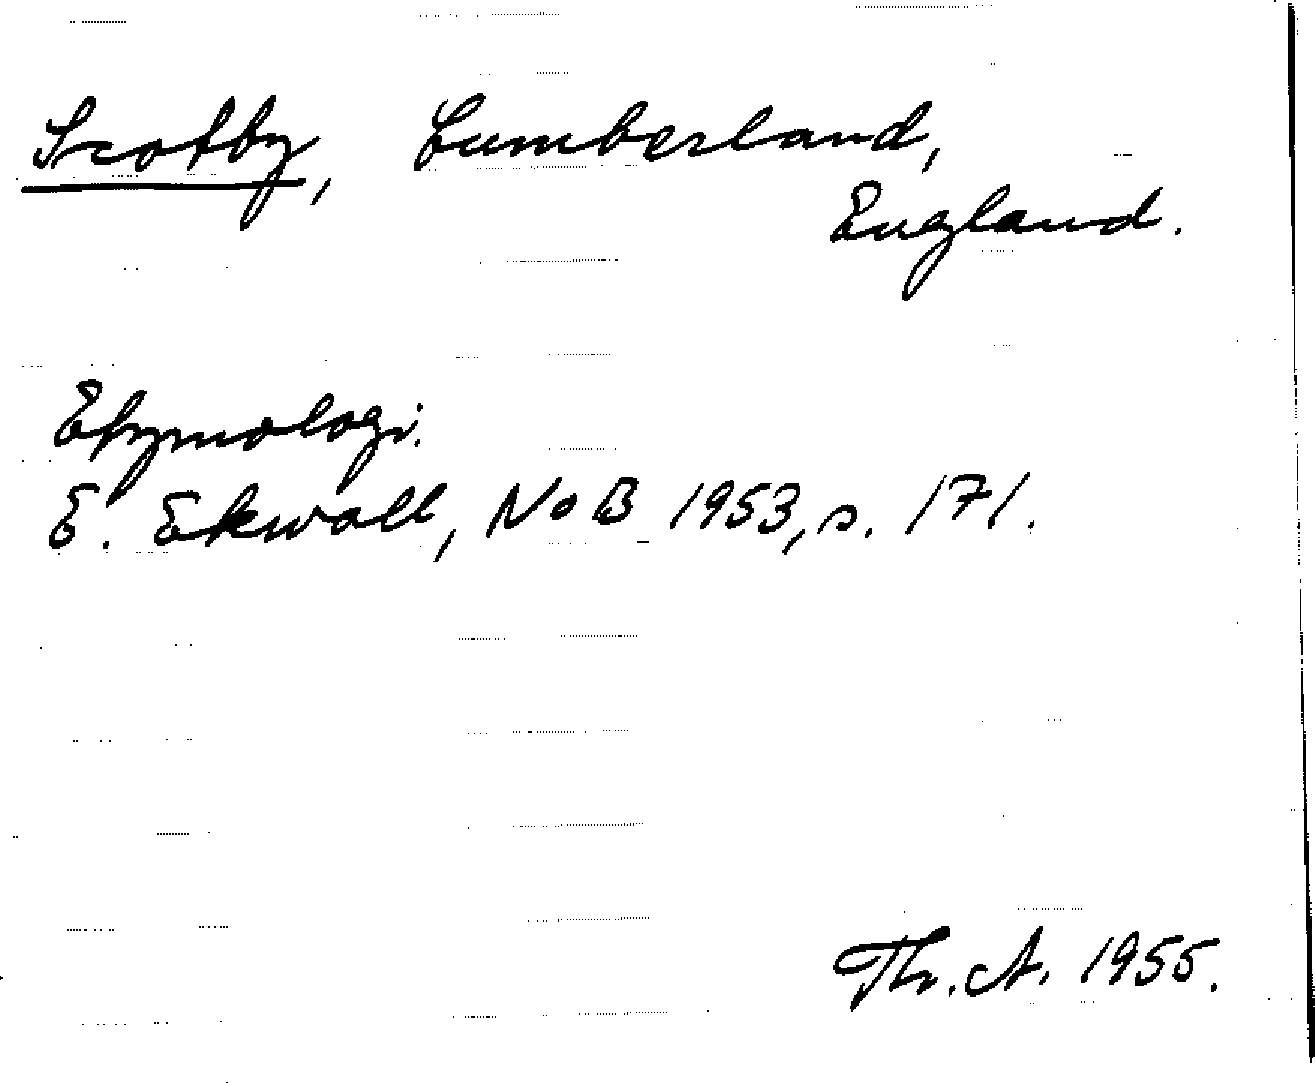 Scotby, Cumberland,
England.
Etymologi.
E. Ekwall, NoB 1953, s. 171.
Th. A. 1955.